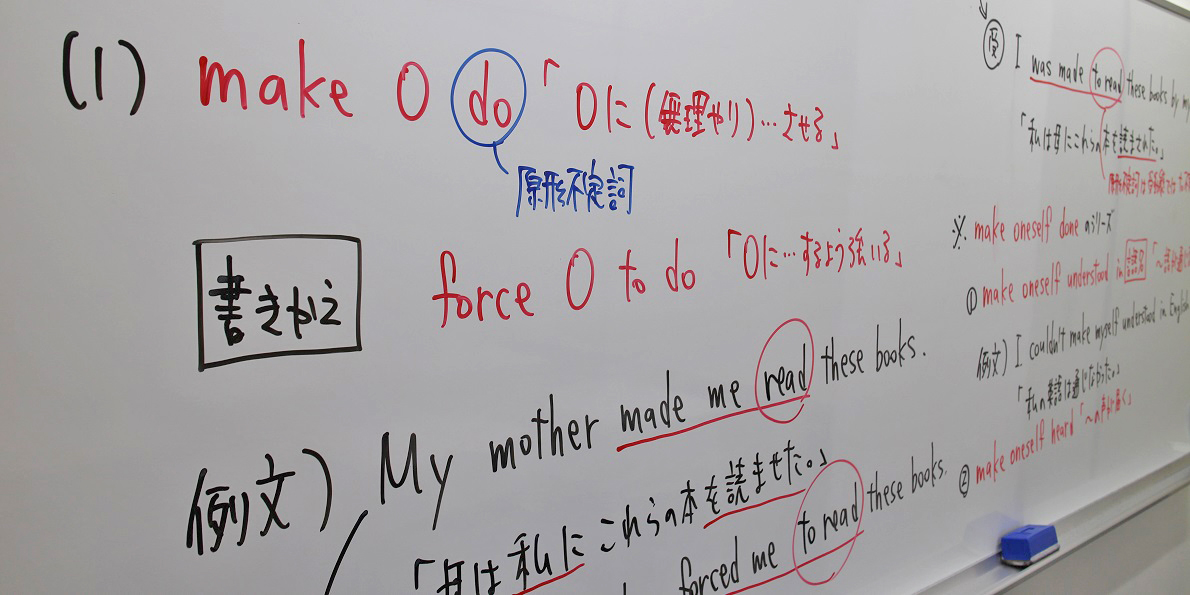 (1) make O do 「Oに(無理やり)…させる」
原形不定詞
書きかえ
force O to do 「Oに…するよう強いる」
例文) My mother made me read these books.
「母は私にこれらの本を読ませた。」
forced me to read these books.
受 I was made to read these books by my
「私は母にこれらの本を読まされた。」
原形不定詞は
※ make oneself done のシリーズ
① make oneself understood in 言語名
例文) I couldn't make myself understood in English
「私の英語は通じなかった。」
② make oneself heard 「〜の声が届く」